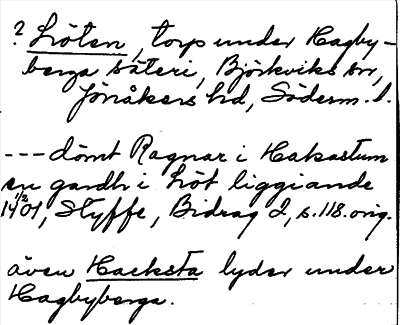 ? Löten, torp under Hagby-
berga säteri, Björkviks sn,
Jönåkers hd, Söderm. l.
--- dömt Ragnar i Hakastum
en gardh i Löt liggiande
14/2 01, Styffe, Bidrag 2, s. 118. orig.
även Hacksta lyder under
Hagbyberga.